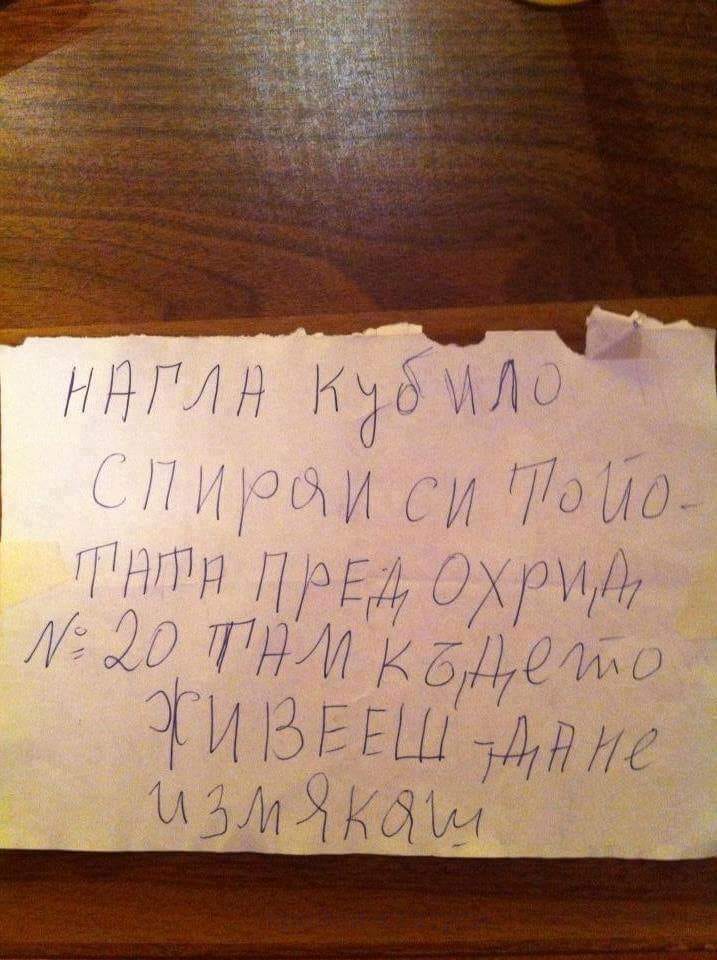 НАГЛА КУбИЛО
СПИРАЙ СИ ТОЙО-
ТАТА ПРЕД ОХРИД
№ 20 ТАМ КЪДЕТО
ЖИВЕЕШ - ДА НЕ
ИЗМЯКАШ